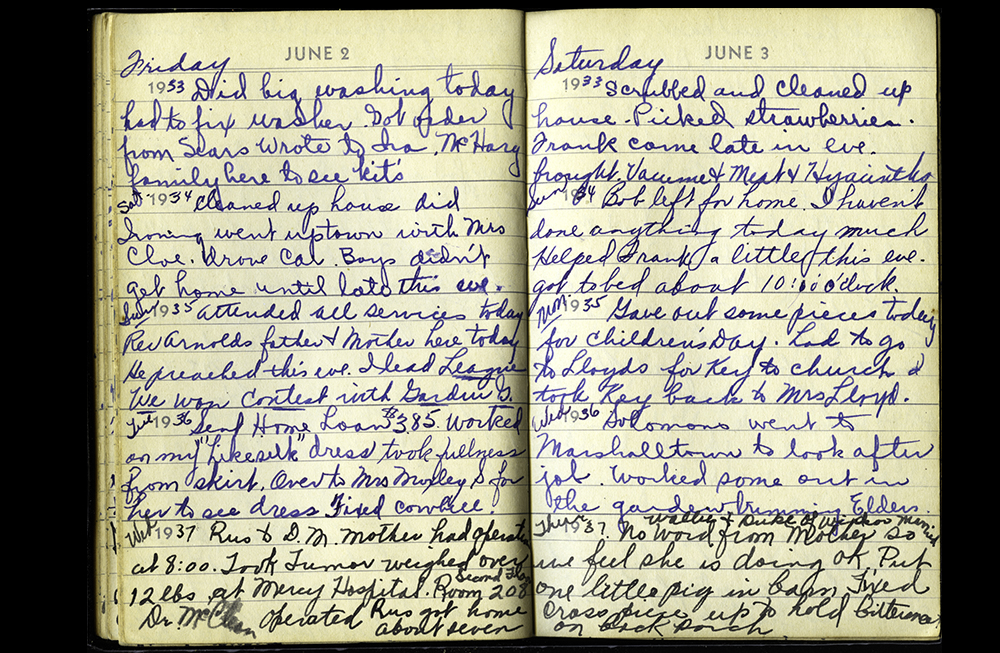 JUNE 2
Friday
1953 Did big washing today
had to fix washer. Got order
from Sears Wrote to Ira. McHarg
family here to see kit's
Sat 1934 Cleaned up house did
Ironing went uptown with Mrs
Cloe. Drove Car. Boys didn't
get home until late this eve.
Sun 1935 attended all services today
Rev Arnolds father & Mother here today
He preached this eve. I lead League
We won contest with Garden G.
Tue 1936 Send Home Loan $3.85. Worked
on my "Likesilk" dress took fullness
from skirt. Over to Mrs S for
her to see dress Fixed
Wed 1937 Rus & D. M. Mother had operation
at 8:00. Took Tumor weighed over
12 lbs. at Mercy Hospital. Room 208
Second Floor
Dr. McClean operated Rus got home
about seven
JUNE 3
Saturday
1933 Scrubbed and cleaned up
house. Picked strawberries.
Frank came late in eve.
brought Vacume & Meat & Hyacinths
Sun 34 Bob left for home. I haven't
done anything today much
Helped Frank a little this eve.
got to bed about 10:00 o'clock.
Mon. 1935 Gave out some pieces today
for Children's Day. Had to go
to Lloyds for Key to church &
took Key back to Mrs Lloyd.
Wed 1936 Solomons went to
Marshalltown to look after
job. Worked some out in
the garden trimming Elders.
Thur 1937. No word from Mother so
we feel she is doing OK. Put
one little pig in barn. Fixed
cross piece up to hold
on back porch